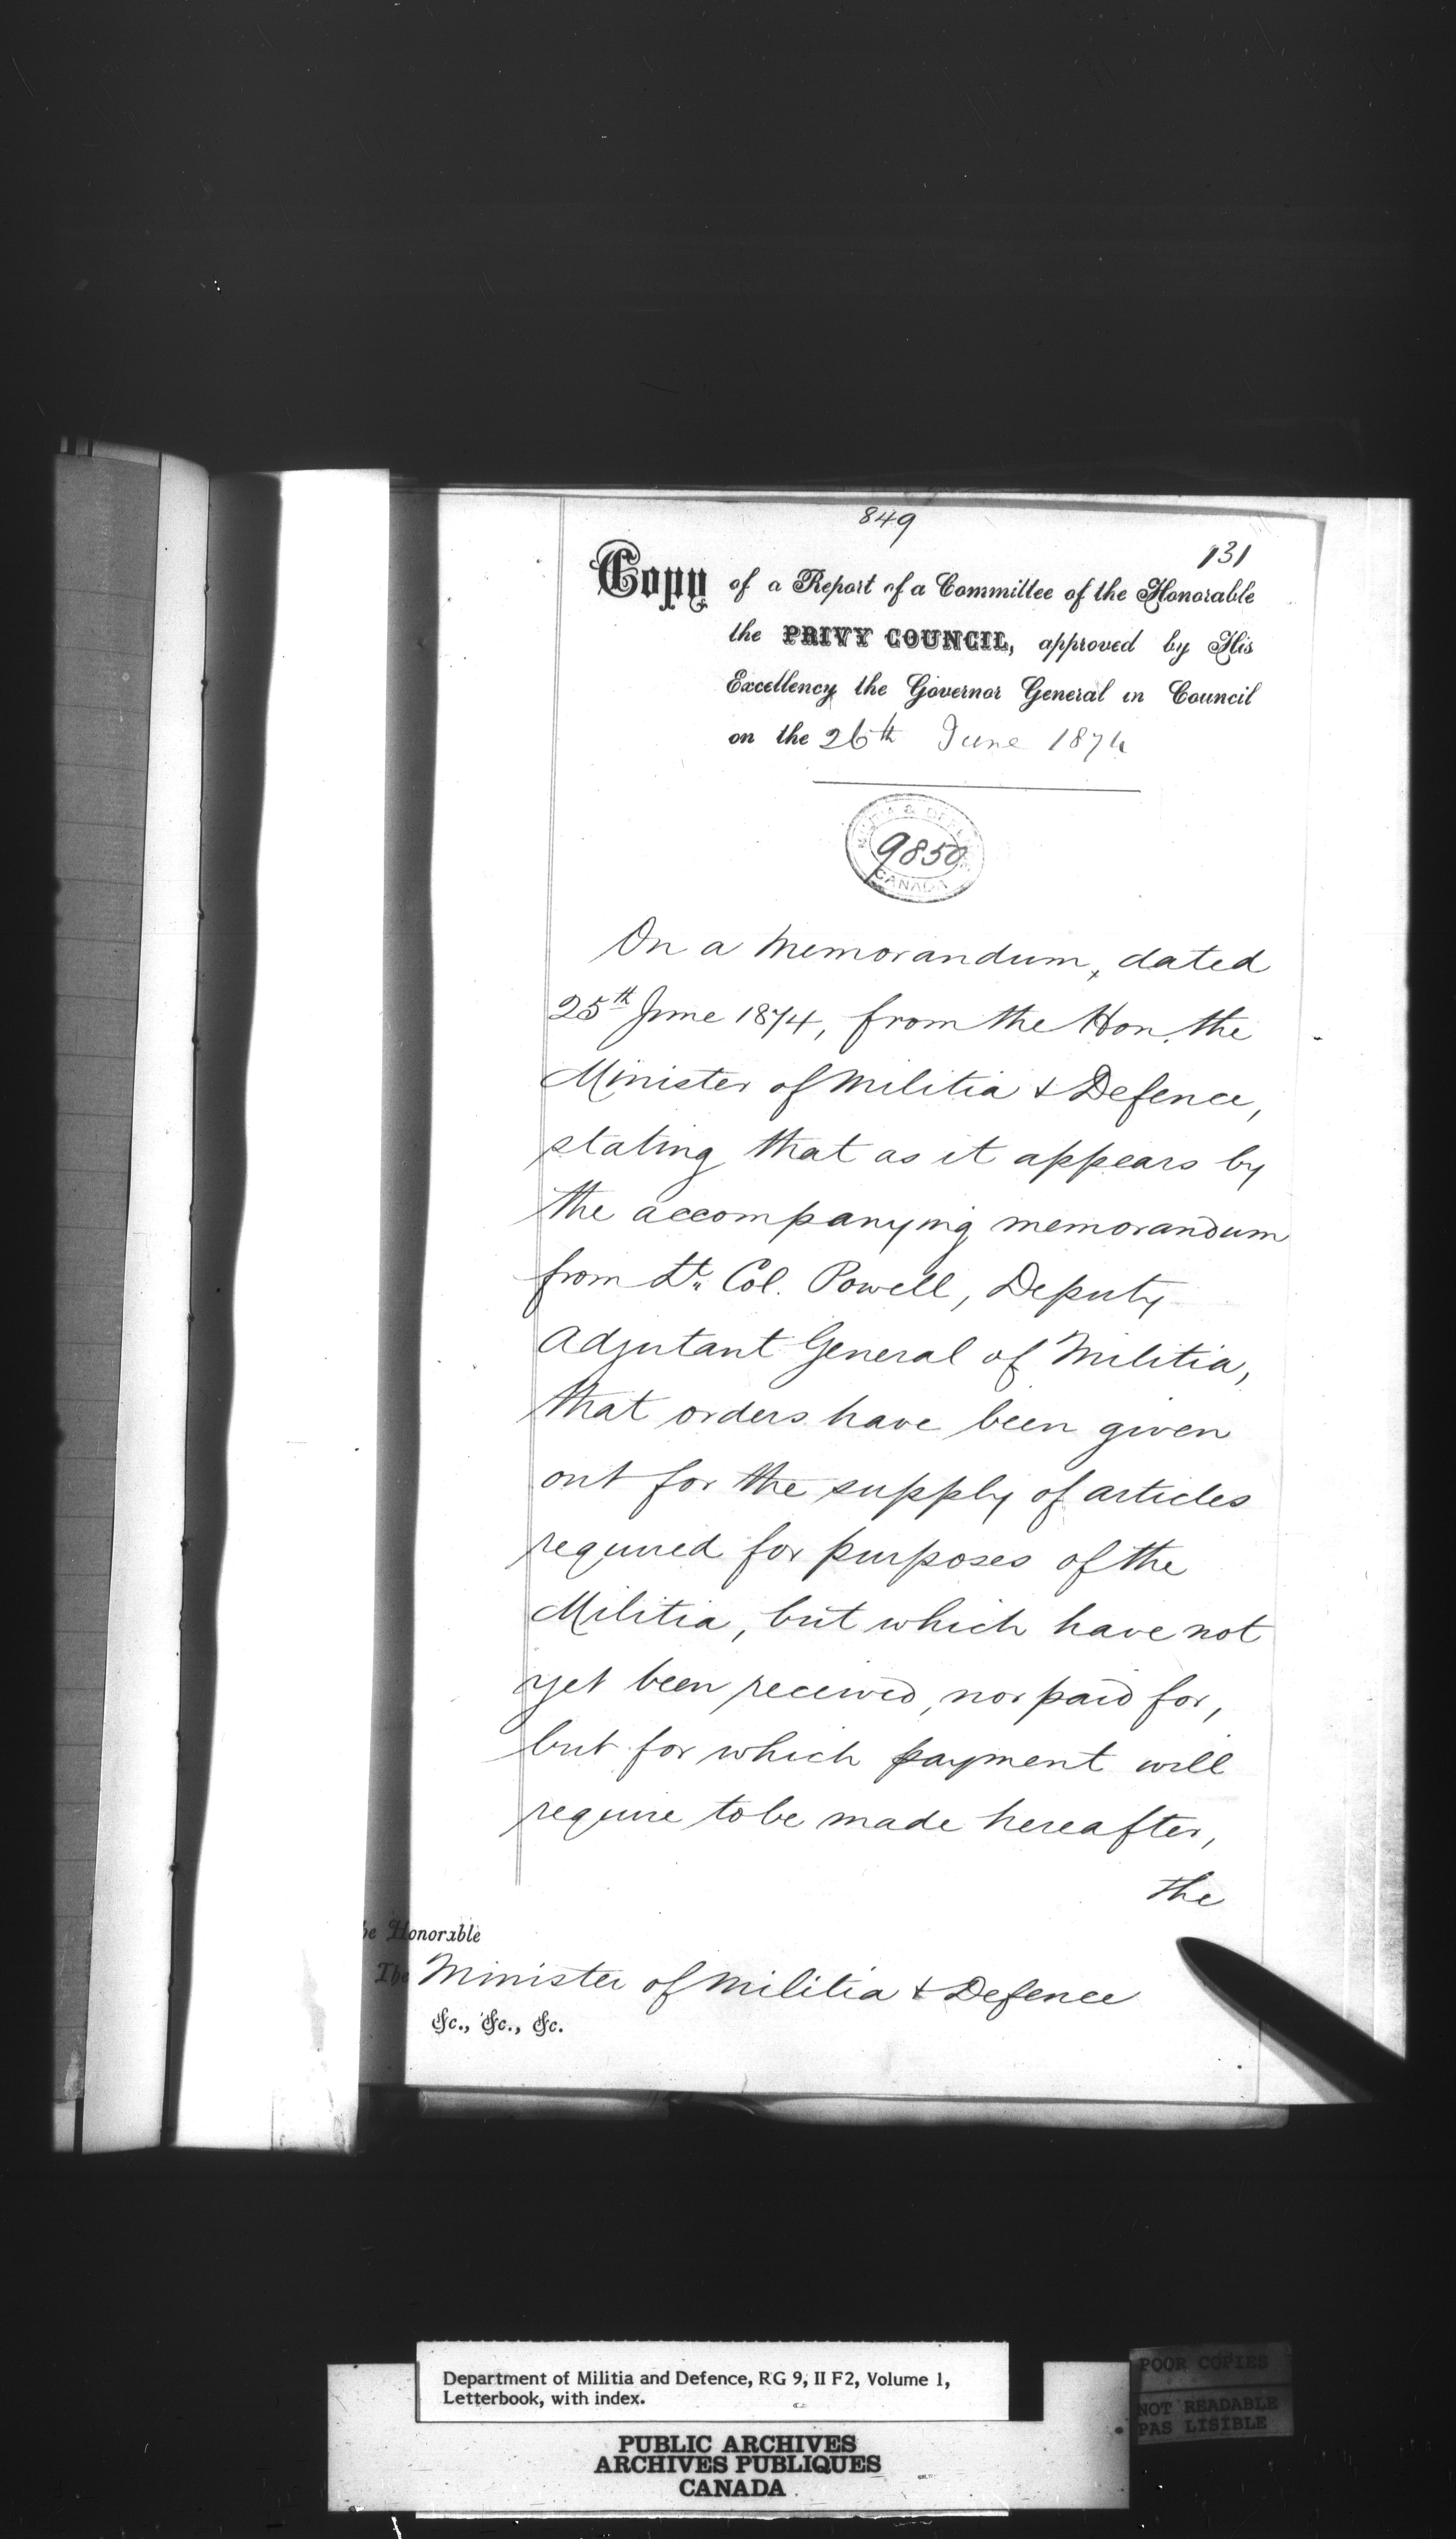 849
131
Copy of a Report of a Committee of the Honorable
the PRIVY COUNCIL, approved by His
Excellency the Governor General in Council
on the 26th June 1874
MILITIA & DEFENCE
9850
CANADA
On a Memorandum, dated
25th June 1874, from the Hon. the
Minister of Militia & Defence,
stating that as it appears by
the accompanying memorandum
from Lt. Col. Powell, Deputy
Adjutant General of Militia,
that orders have been given
out for the supply of articles
required for purposes of the
Militia, but which have not
yet been received, nor paid for,
but for which payment will
require to be made hereafter,
the
he Honorable
The Minister of Militia & Defence
&c., &c., &c.
Department of Militia and Defence, RG 9, II F2, Volume 1,
Letterbook, with index.
PUBLIC ARCHIVES
ARCHIVES PUBLIQUES
CANADA
POOR COPIES
NOT READABLE
PAS LISIBLE